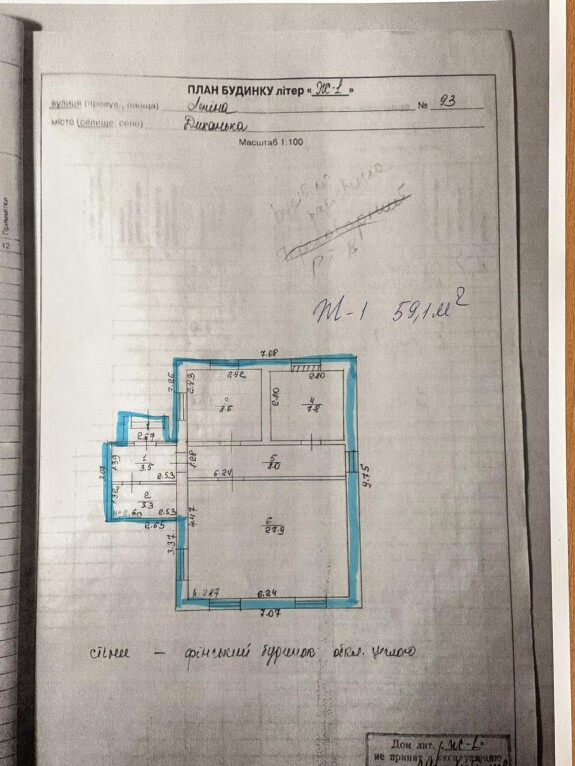 ПЛАН БУДИНКУ літер «Ж-1»
вулиця (провул., площа) Леніна № 93
місто (селище, село) Диканька
Масштаб 1:100
Ж-1 59,1м²
7.08
3.26
2.93
2.92
2.80
2.80
4
7.8
8.5
2.67
1
3.5
1.39
3.07
2.53
1.28
5
8.0
6.24
9.75
1.32
2
3.3
2.53
2.65
4.47
3.37
6
27.9
6.24
7.07
стіни – фінський будинок обкл. цеглою
Дом лит. «Ж-1»
не принят в эксплуатацию
Примітки
12